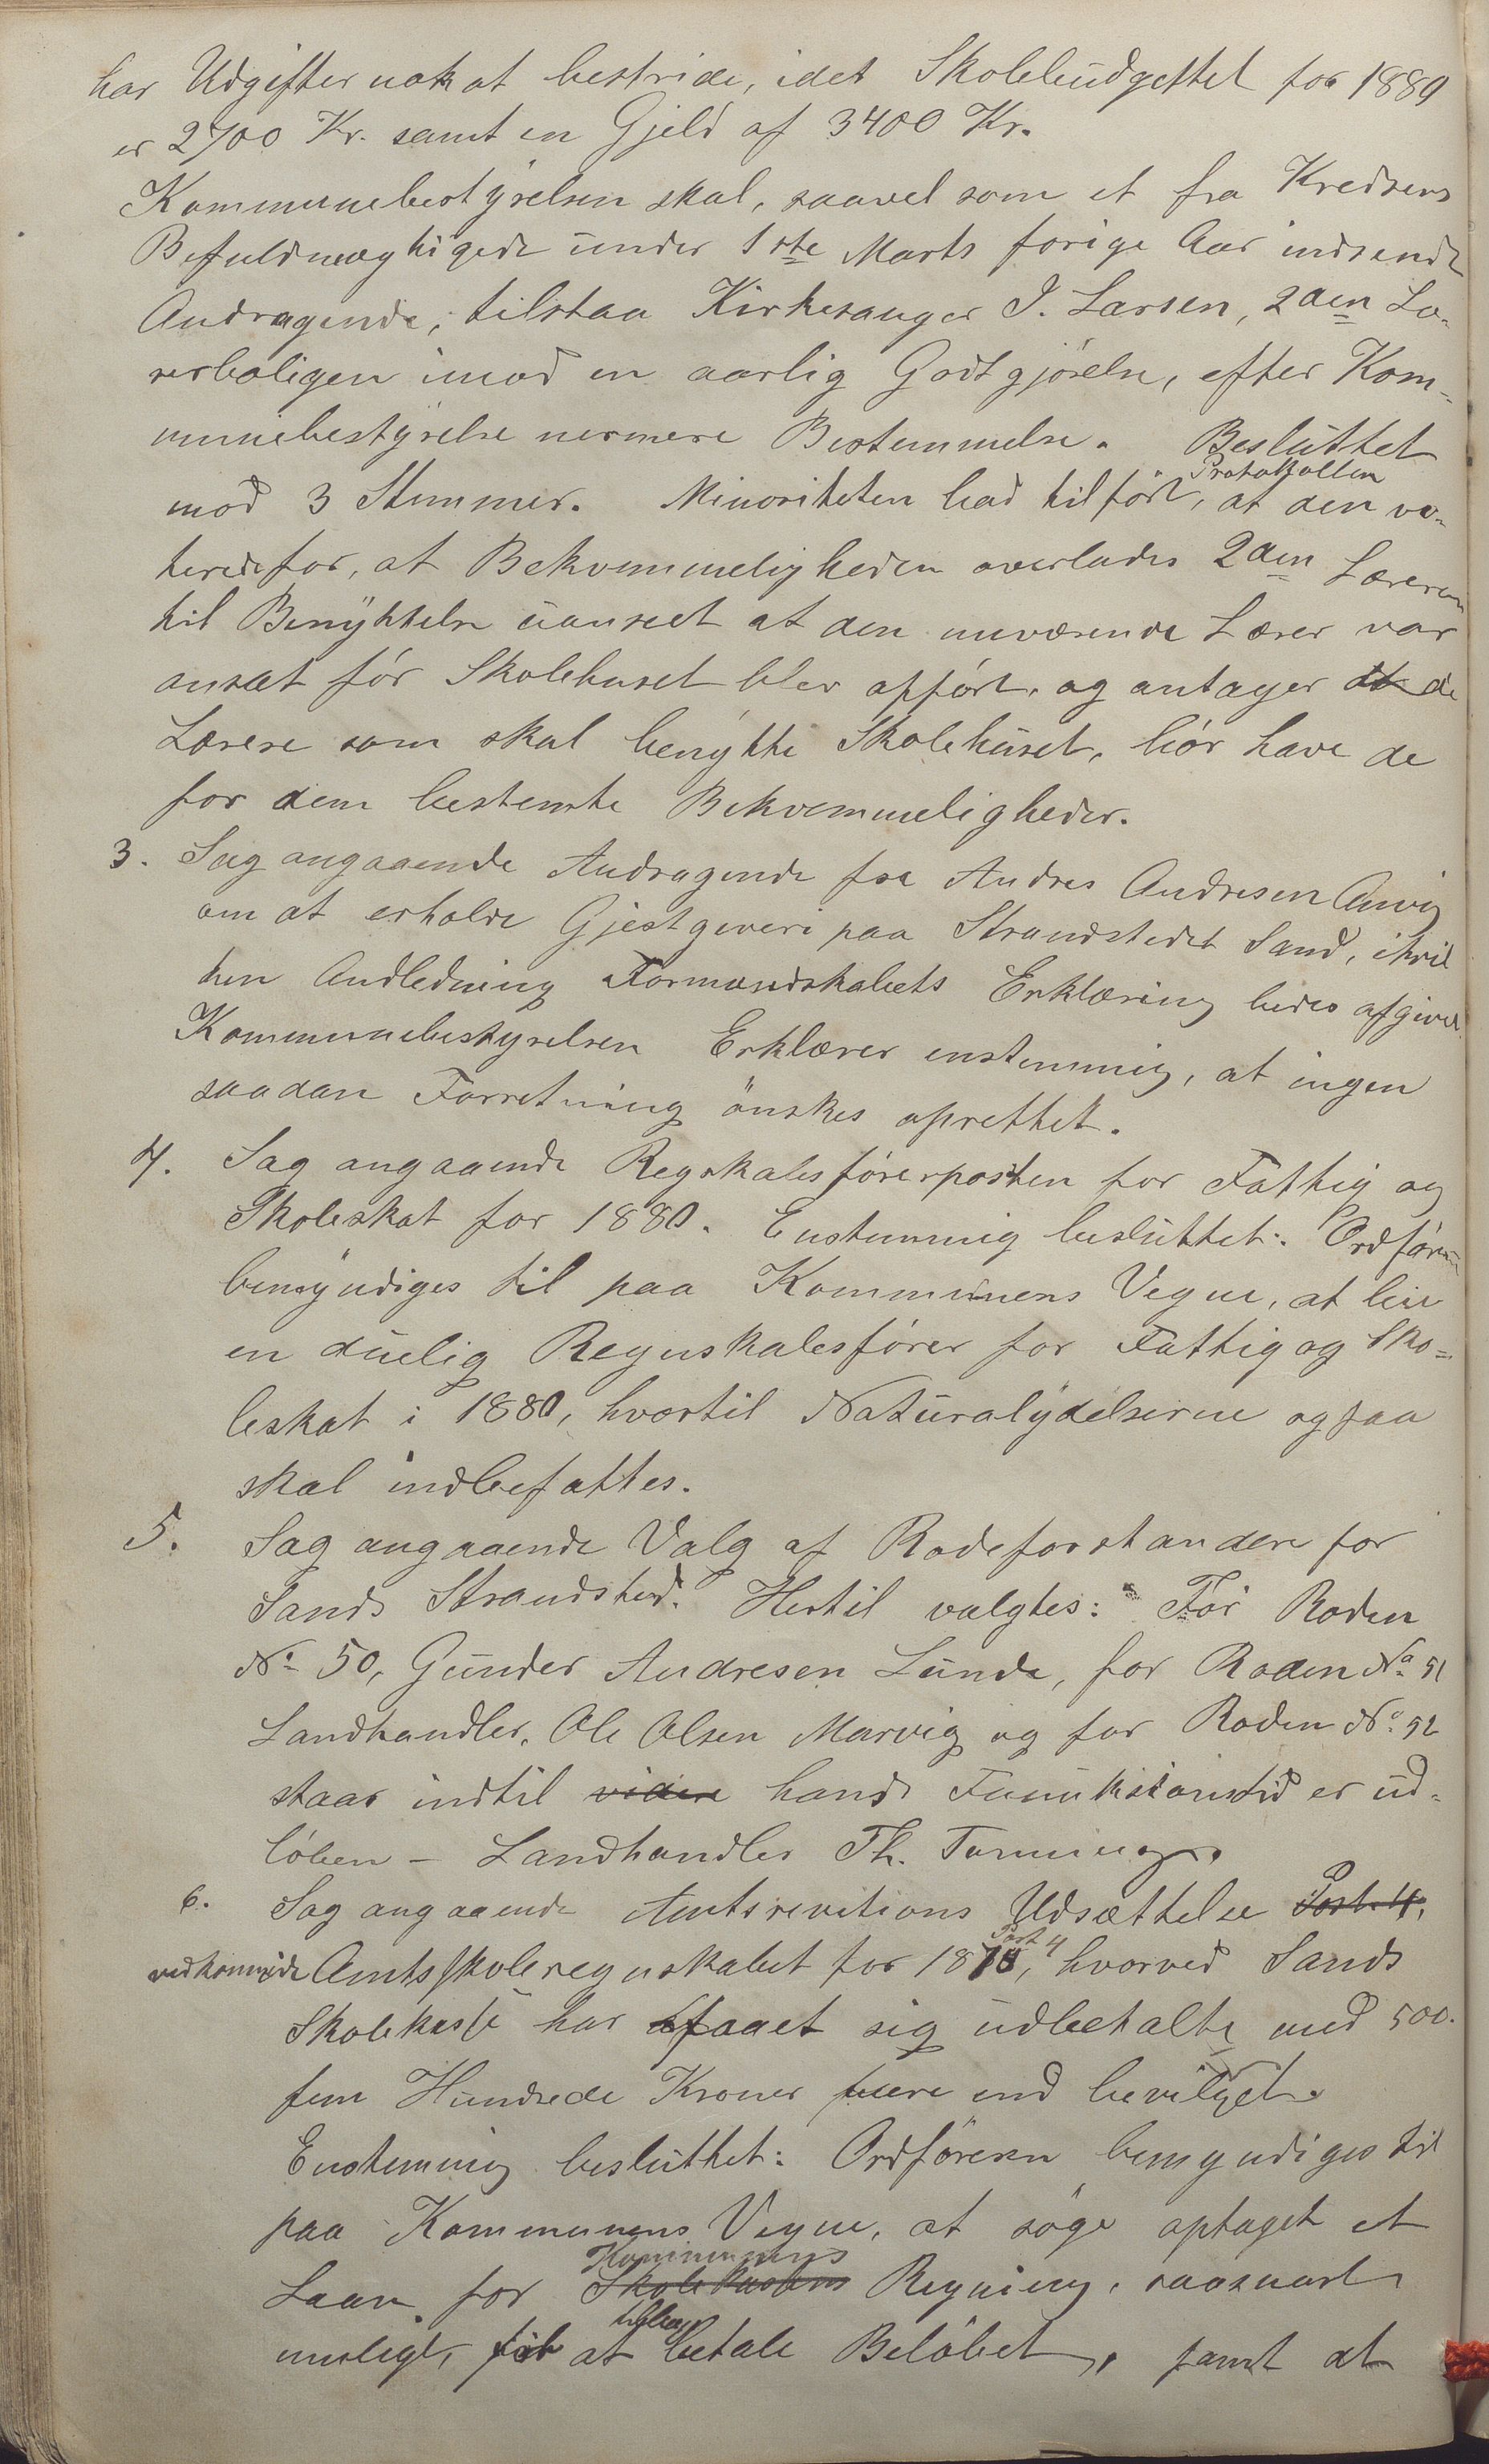 har Udgifter nok at bestride, idet Skolebudgettet for 1880
er 2700 Kr. samt en Gjeld af 3400 Kr.
Kommunebestyrelsen skal, saavel som et fra Kredsens
Befuldmægtigede under 1ste Marts forige Aar indsendt
Andragende, tilstaa Kirkesanger I. Larsen, 2den Læ-
rerboligen imod en aarlig Godtgjörelse, efter Kom-
munebestyrelse nermere Bestemmelse. Besluttet
mod 3 Stemmer. Minoriteten bad tilfört Protokollen, at den vo-
terede for, at Bekvemmeligheden overlades 2den Læreren
til Benyttelse uanseet at den nuværende Lærer var
ansat för Skolehuset blev opfört, og antager at de
Lærere som skal benytte Skolehuset, bör have de
for dem bestemte Bekvemmeligheder.
3. Sag angaaende Andragende fra Andres Andresen
om at erholde Gjestgiveri paa Strandstedet Sand, i hvil
ken Andledning Formandskabets Erklæring bedes afgivet.
Kommunebestyrelsen Erklærer enstemmig, at ingen
saadan Forretning önskes oprettet.
4. Sag angaaende Regnskabsförerposten for Fattig og
Skoleskat for 1880. Enstemmig besluttet: Ordföreren
bemyndiges til paa Kommunens Vegne, at leie
en duelig Regnskabsförer for Fattig og Sko-
leskat i 1880, hvortil Naturalydelserne ogsaa
skal indbefattes.
5. Sag angaaende Valg af Rodeforstandere for
Sands Strandsted. Hertil valgtes: For Roden
No 50, Gunder Andresen Lunde, for Roden No 51
Landhandler, Ole Olsen Marvig og for Roden No 52
staar indtil videre hans Funktionstid er ud-
löben - Landhandler Th.
6. Sag angaaende Amtsrevitions Udsættelse Post 4,
vedkommende Amtsskoleregnskabet for 1878, Post 4 hvorved Sands
Skolekasse har faaet sig udbetalte med 500.
fem Hundrede Kroner mere end bevilget.
Enstemmig besluttet: Ordföreren bemyndiges til
paa Kommunens Vegne, at söge optaget et
Kommunens
Laan for Skolekassens Regning, saasnart
tilbage
muligt, for at betale Belöbet, samt at